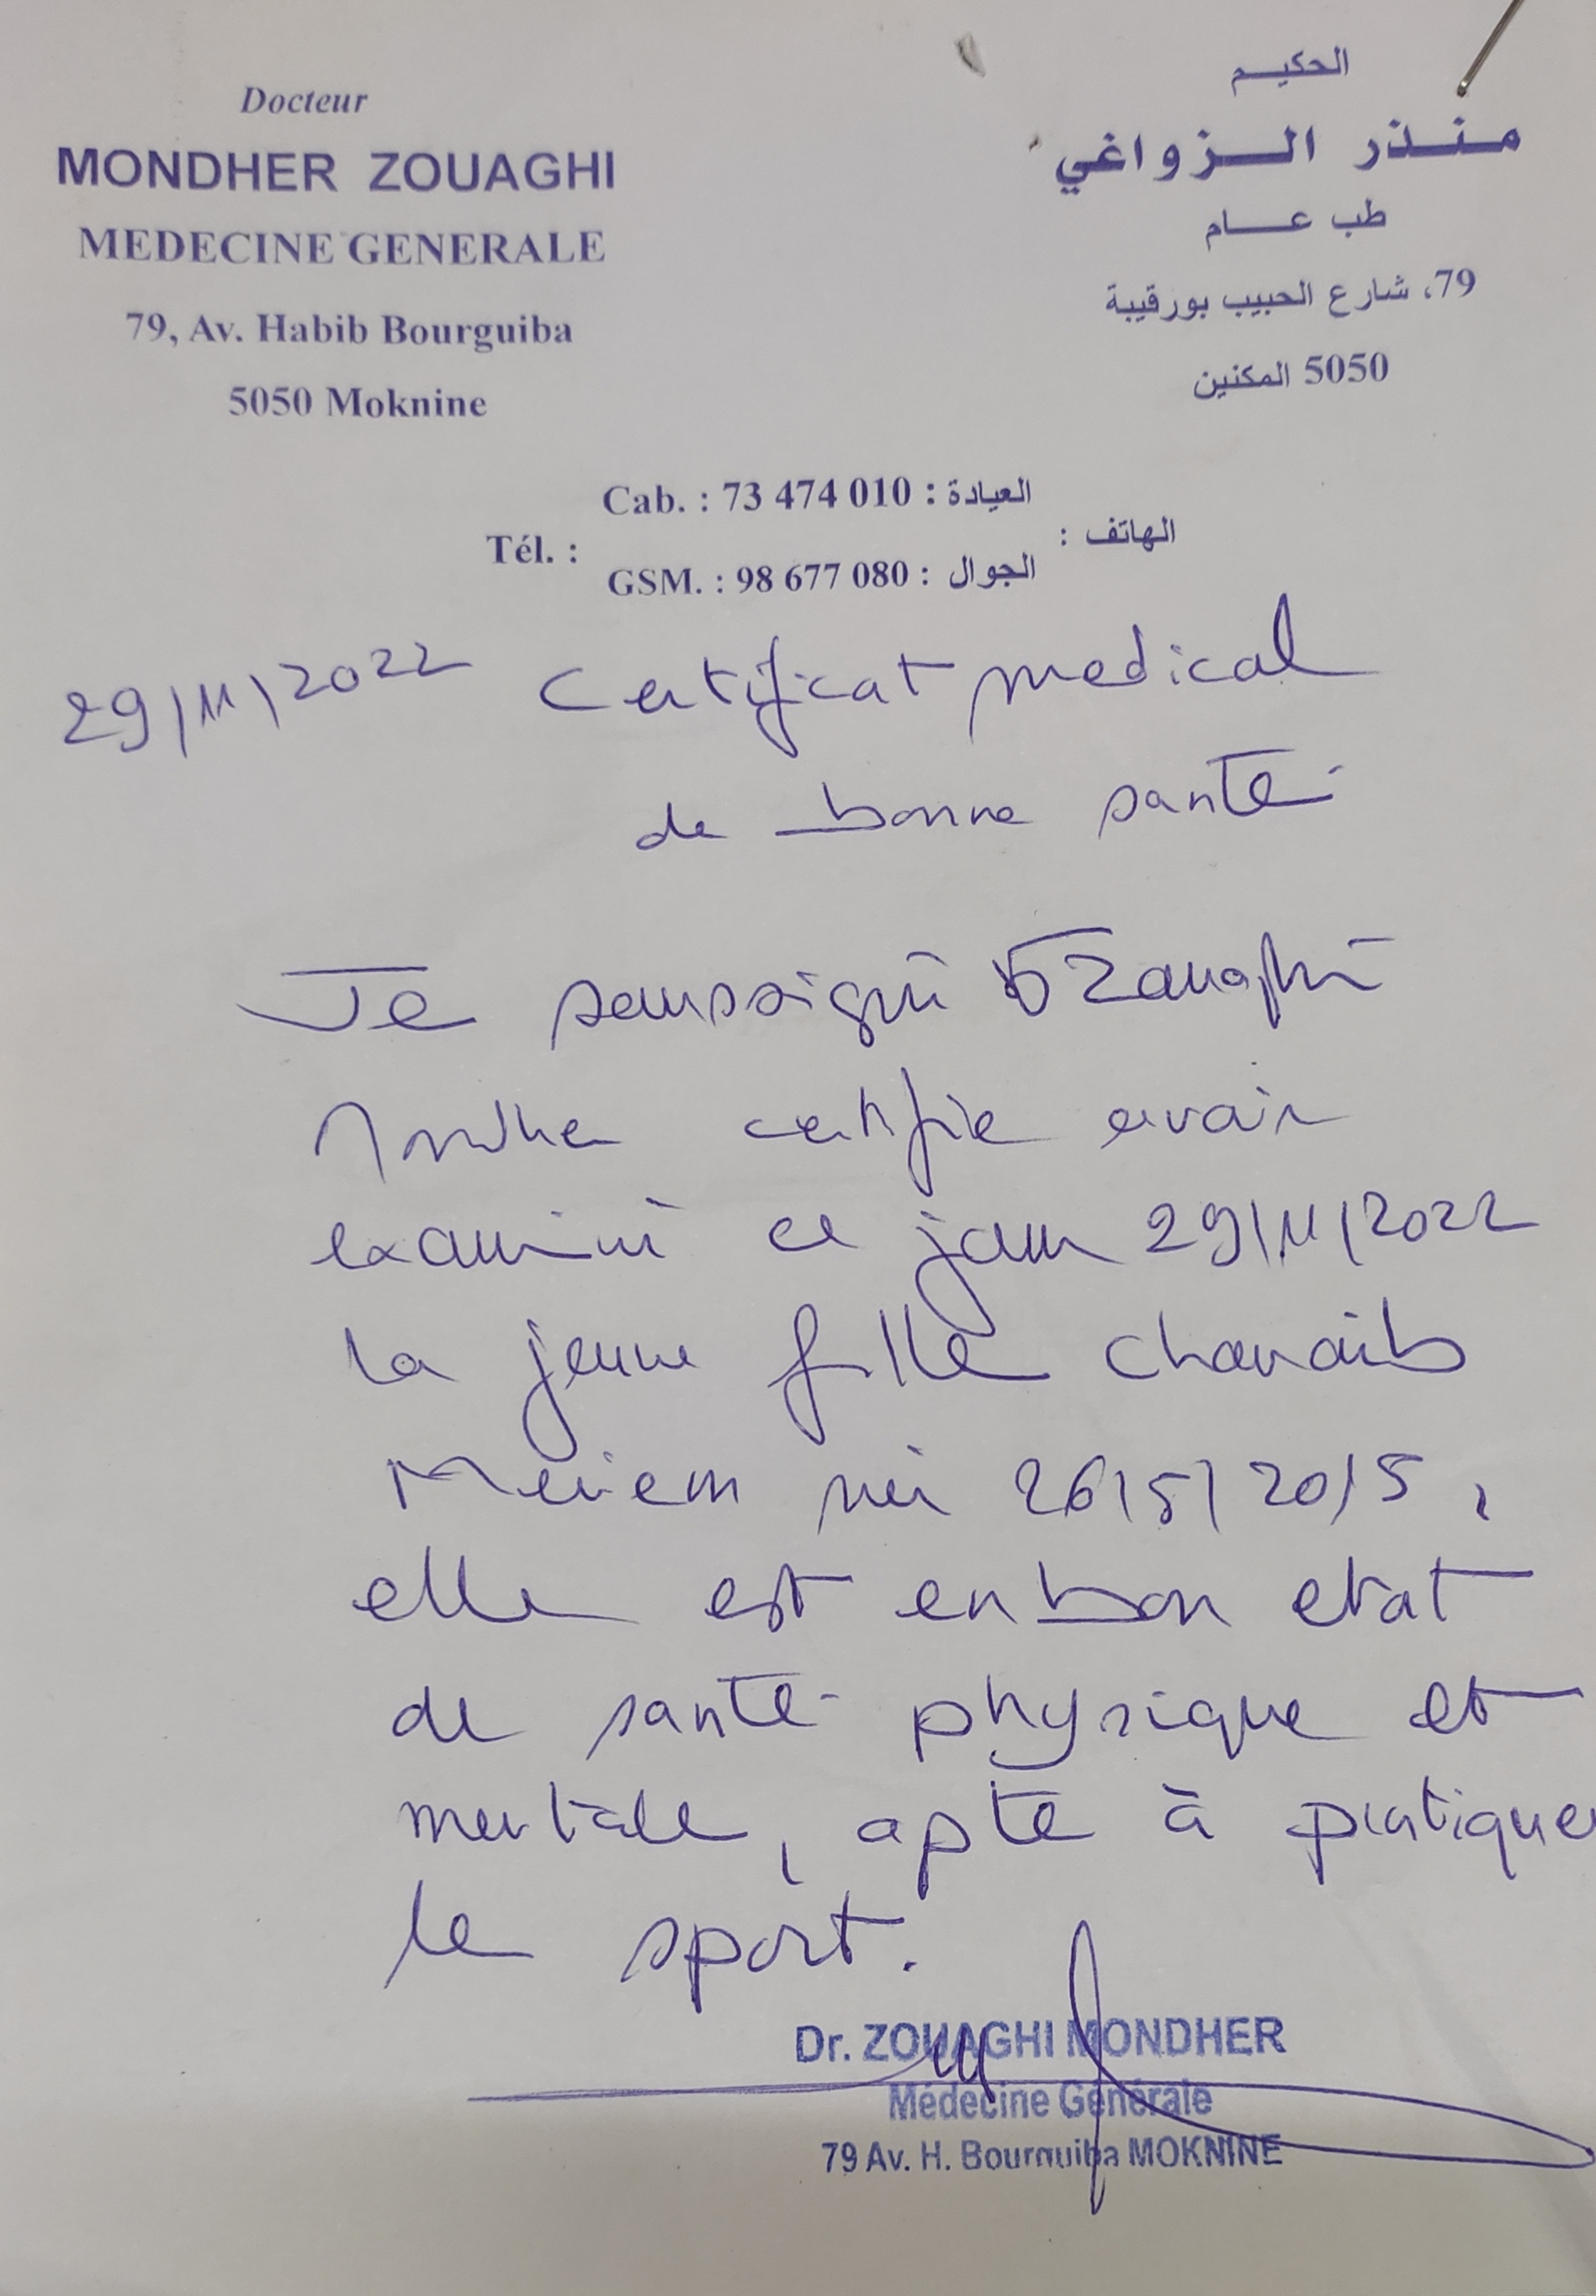 Docteur
MONDHER ZOUAGHI
MEDECINE GENERALE
79, Av. Habib Bourguiba
5050 Moknine
الحكيم
منذر الزواغي
طب عام
79، شارع الحبيب بورقيبة
5050 المكنين
Tél. : Cab. : 73 474 010 : العيادة الهاتف :
GSM. : 98 677 080 : الجوال
29/11/2022 Certificat medical
de bonne santé
Je soussigné Dr Zouaghi
Mondher certifie avoir
examiné ce jour 29/11/2022
la jeune fille
Meriem née 26/5/2015,
elle est en bon etat
de santé physique et
mentale, apte à pratiquer
le sport.
Dr. ZOUAGHI MONDHER
Médecine Générale
79 Av. H. Bourguiba MOKNINE